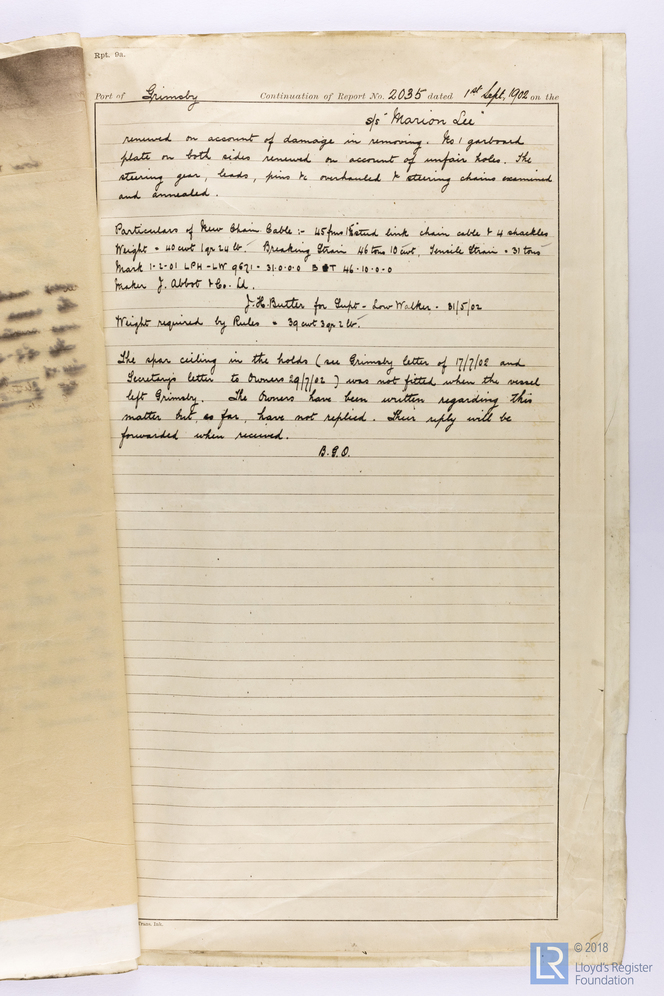 Rpt. 9a.
Port of Grimsby Continuation of Report No. 2035 dated 1st Sept, 1902 on the
s/s "Marion Lee"
renewed on account of damage in removing. No 1 garboard
plate on both sides renewed on account of unfair holes. The
steering gear, leads, pins &c overhauled & steering chains examined
and annealed.
Particulars of New Chain Cable :- 45 fms stud link chain cable & 4 shackles
Weight = 40 cwt 1 qr 24 lb. Breaking Strain 46 tons 10 cwt, Tensile Strain = 31 tons
Mark 1-2-01 LPH-LW 9671 - 31-0-0-0 B T 46-10-0-0
Maker J. Abbot & Co. Ld.
J. H. Butter for Supt - Low Walker - 31/5/02
Weight required by Rules = 39 cwt 3 qr 2 lb.
The spar ceiling in the holds (see Grimsby letter of 17/7/02 and
Secretary's letter to Owners 29/7/02) was not fitted when the vessel
left Grimsby. The Owners have been written regarding this
matter but, so far, have not replied. Their reply will be
forwarded when received.
B.G.O.
Trans. Ink.
LR
© 2018
Lloyd's Register
Foundation